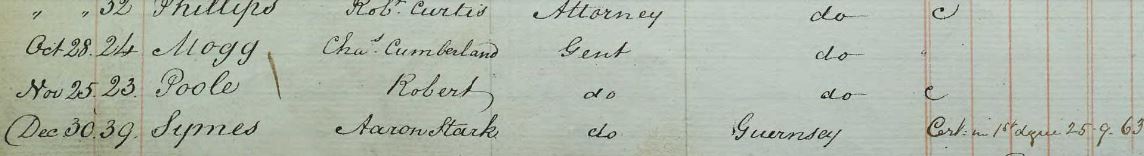 " " 32 Phillips Robt. Curtis Attorney do C
Oct 28. 24 Mogg Chas. Cumberland Gent do "
Nov 25. 23. Poole Robert do do C
(Dec 30. 39. Symes Aaron Stark do Guernsey Cert. in 1st dgree 25-9-63